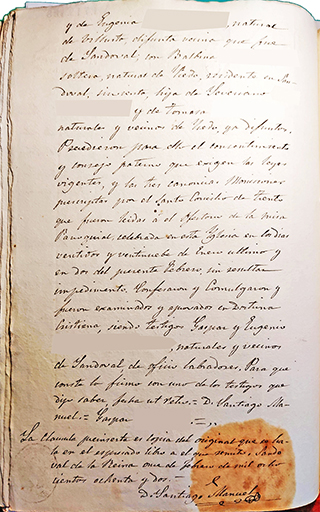 y de Eugenia , natural
de , difunta vecina que fue
de Sandoval; con Balbina
soltera, natural de , residente en San-
doval, sirvienta, hija de Severiano
y de Tomasa
naturales y vecinos de , ya difuntos.
Precedieron para ello el consentimiento
y consejo paterno que exigen las leyes
vigentes, y las tres canonicas Moniciones
prescriptas por el Santo Concilio de Trento
que fueron leidas á el Ofertorio de la misa
Parroquial, celebrada en esta Yglesia en los dias
veintidos y veintinueve de Enero ultimo y
en dos del presente Febrero, sin resultar
impedimento. Confesaron y Comulgaron y
fueron examinados y aprovados en Doctrina
Cristiana, siendo testigos Gaspar y Eugenio
, naturales y vecinos
de Sandoval, de oficio labradores. Para que
conste lo firmo con uno de los testigos que
dijo saber, fecha ut retro = D. Santiago Ma-
nuel = Gaspar
La clausula preinserta es copia del original que se ha-
lla en el espresado libro a el que remito. Sando
val de la Reina once de Febrero de mil ocho
cientos ochenta y dos =
D. Santiago Manuel